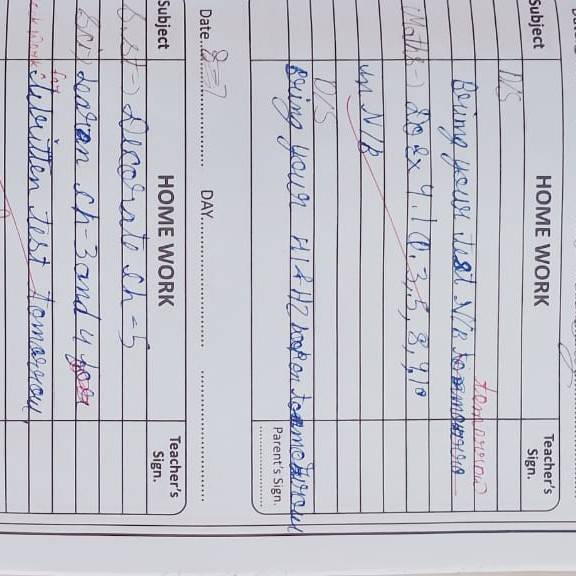 Subject HOME WORK Teacher's Sign.
D/S
Bring your test N/B tomorrow
Maths → Do ex 4.1 Q. 3, 5, 8, 9, 10
in N/B
D/S
Bring your H1 & H2 on
Parent's Sign.
Date 8-7 DAY
Subject HOME WORK Teacher's Sign.
S.St → Decorate ch-5
Sci → Learn ch-3 and 4 for
written test tomorrow